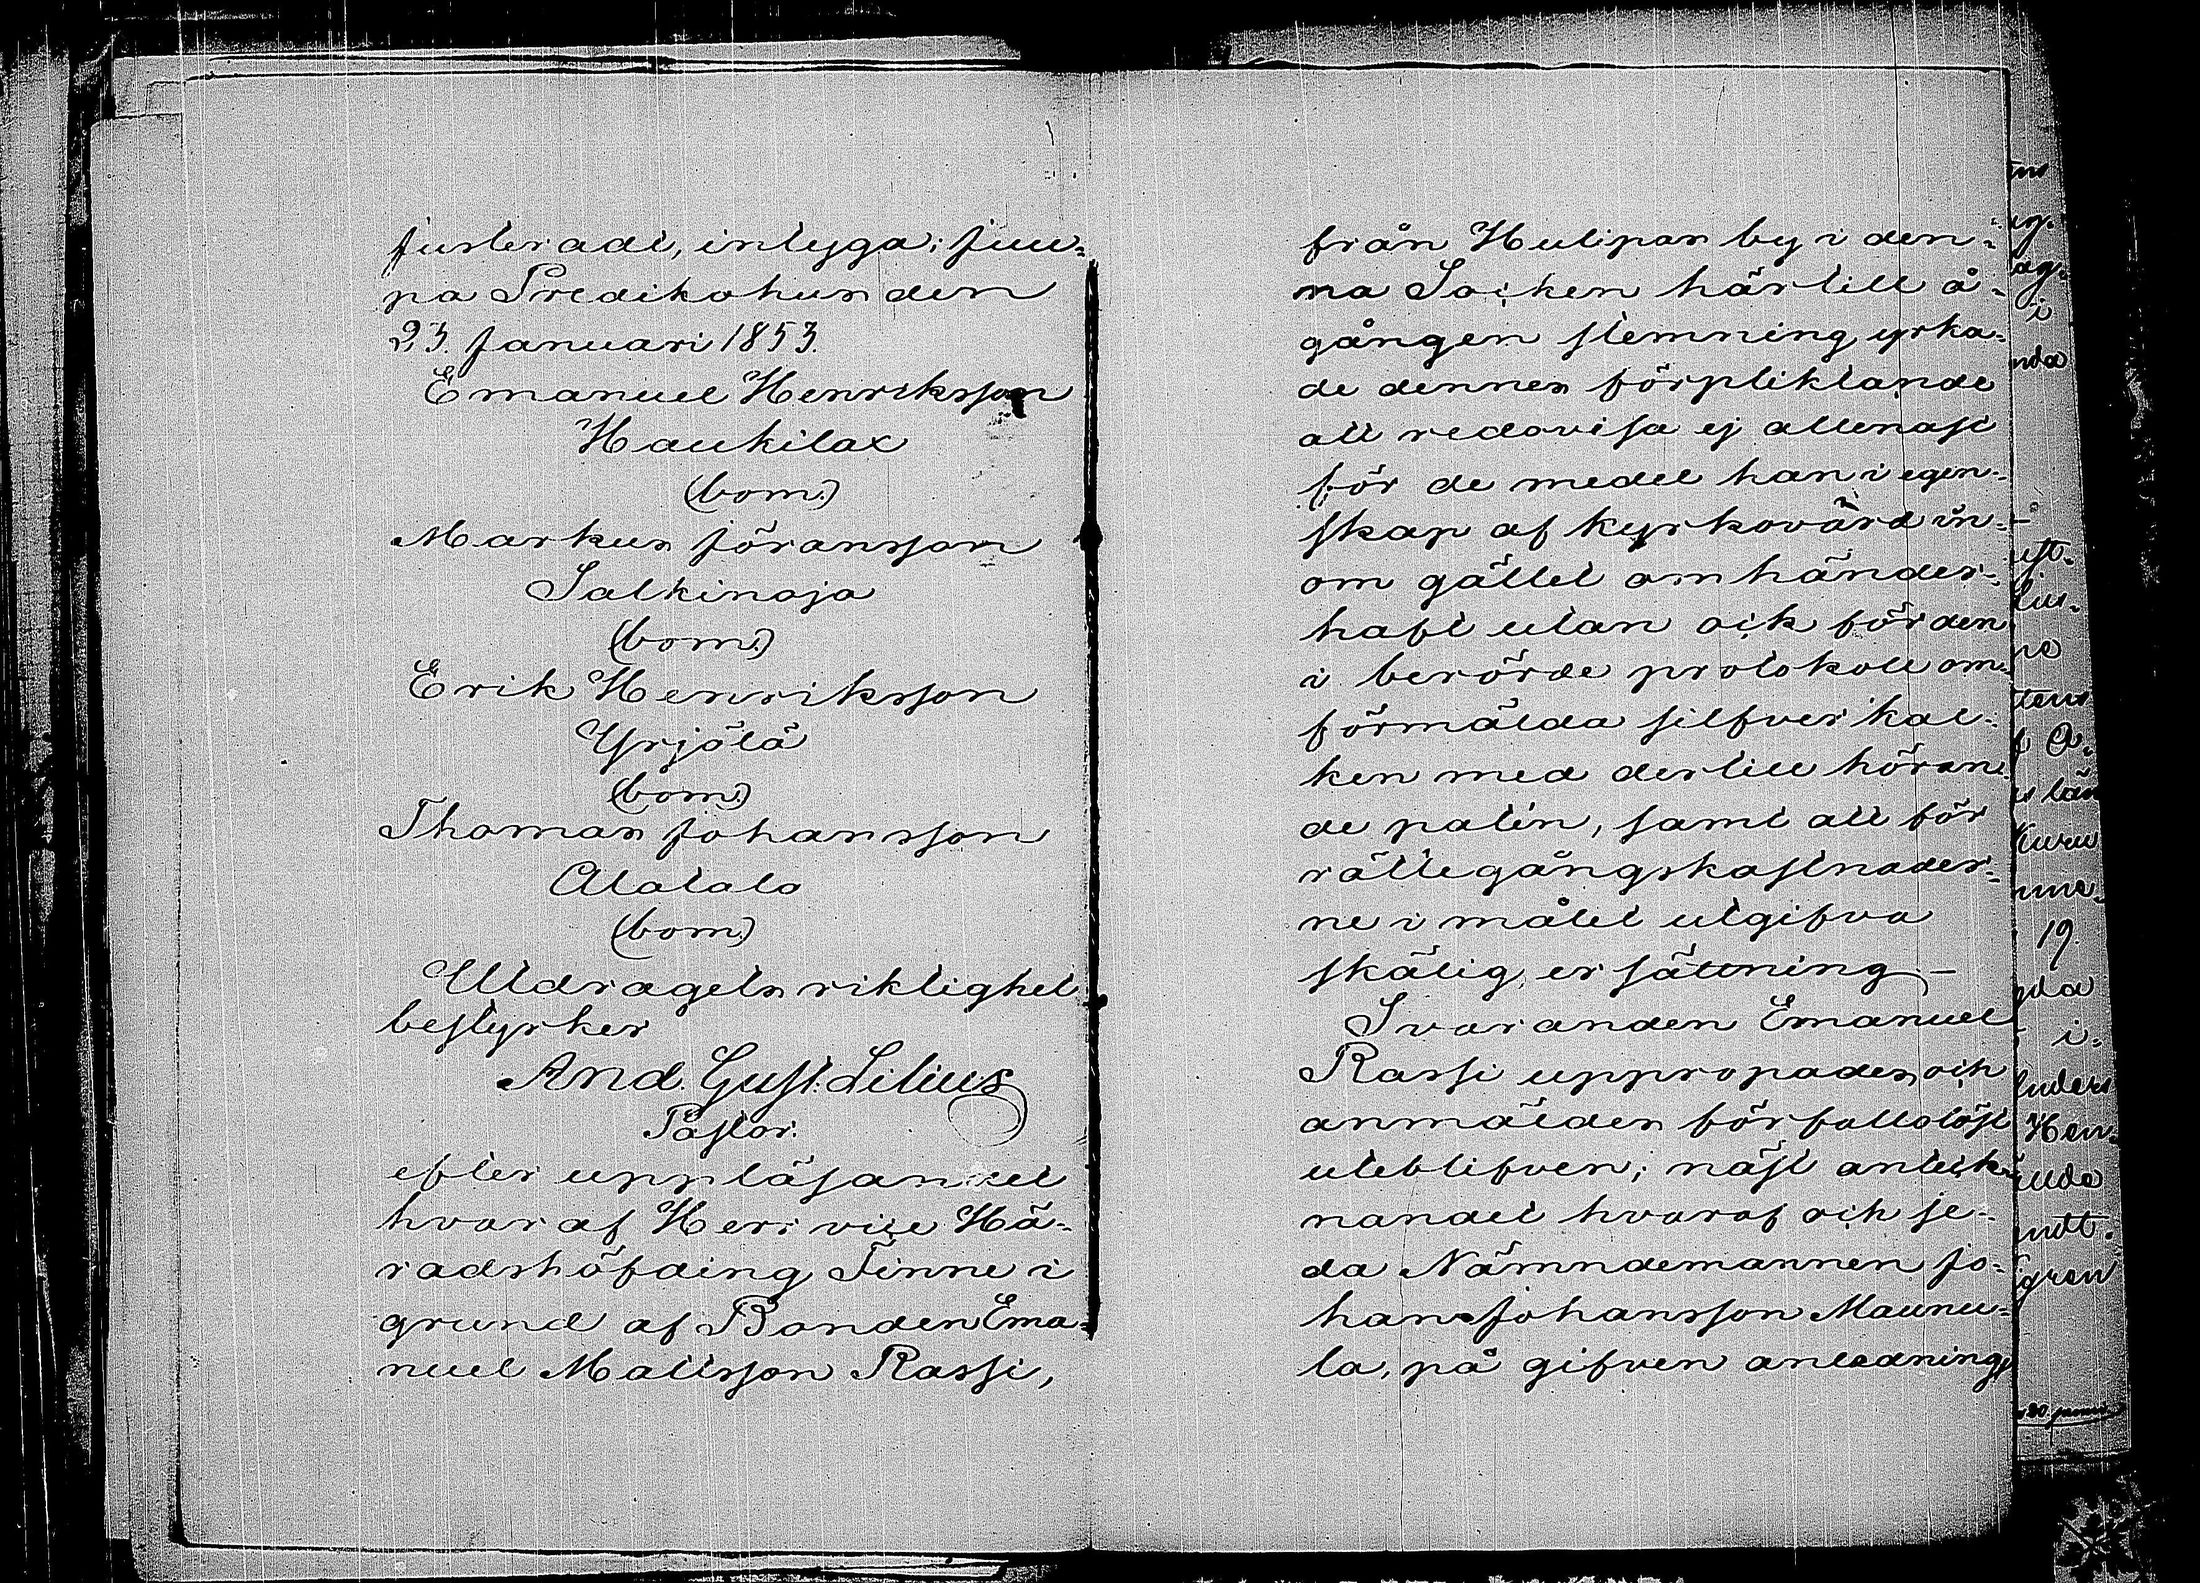 justeradt, intyga; Juu-
pa Predikohus den
23. Januari 1853.
Emanuel Henriksson
Haukilax
(bom.)
Markus Jöransson
Salkinoja
(bom.)
Erik Henriksson
Yrjölä
(bom.)
Thomas Johansson
Alatalo
(bom.)
Utdragets riktighet
bestyrker
And. Gust. Lilius
Pastor.
efter uppläsandet
hvaraf Herr vice Hä-
radshöfding Finne i
grund af Bonden Ema-
nuel Mattsson Rassi,
från Hulipas by i den-
na Socken härtill å-
gången stemning yrka-
de dennes förpliktande
att redovisa ej allenast
för de medel han i egen-
skap af kyrkovärd in-
om gället omhänder-
haft utan ock för den
i berörde protokoll om-
förmälda silfver kal-
ken med dertill höran-
de patén, samt att för
rättegångskostnader-
ne i målet utgifva
skälig ersättning. —
Svaranden Emanuel
Rassi uppropades och
anmäldes förfallolöst
utebliven; näst anteck-
nandet hvaraf och se-
da Nämndemannen Jo-
han Johansson Maunu-
la, på gifven anledning,
i
nda
19.
i.
Hen-